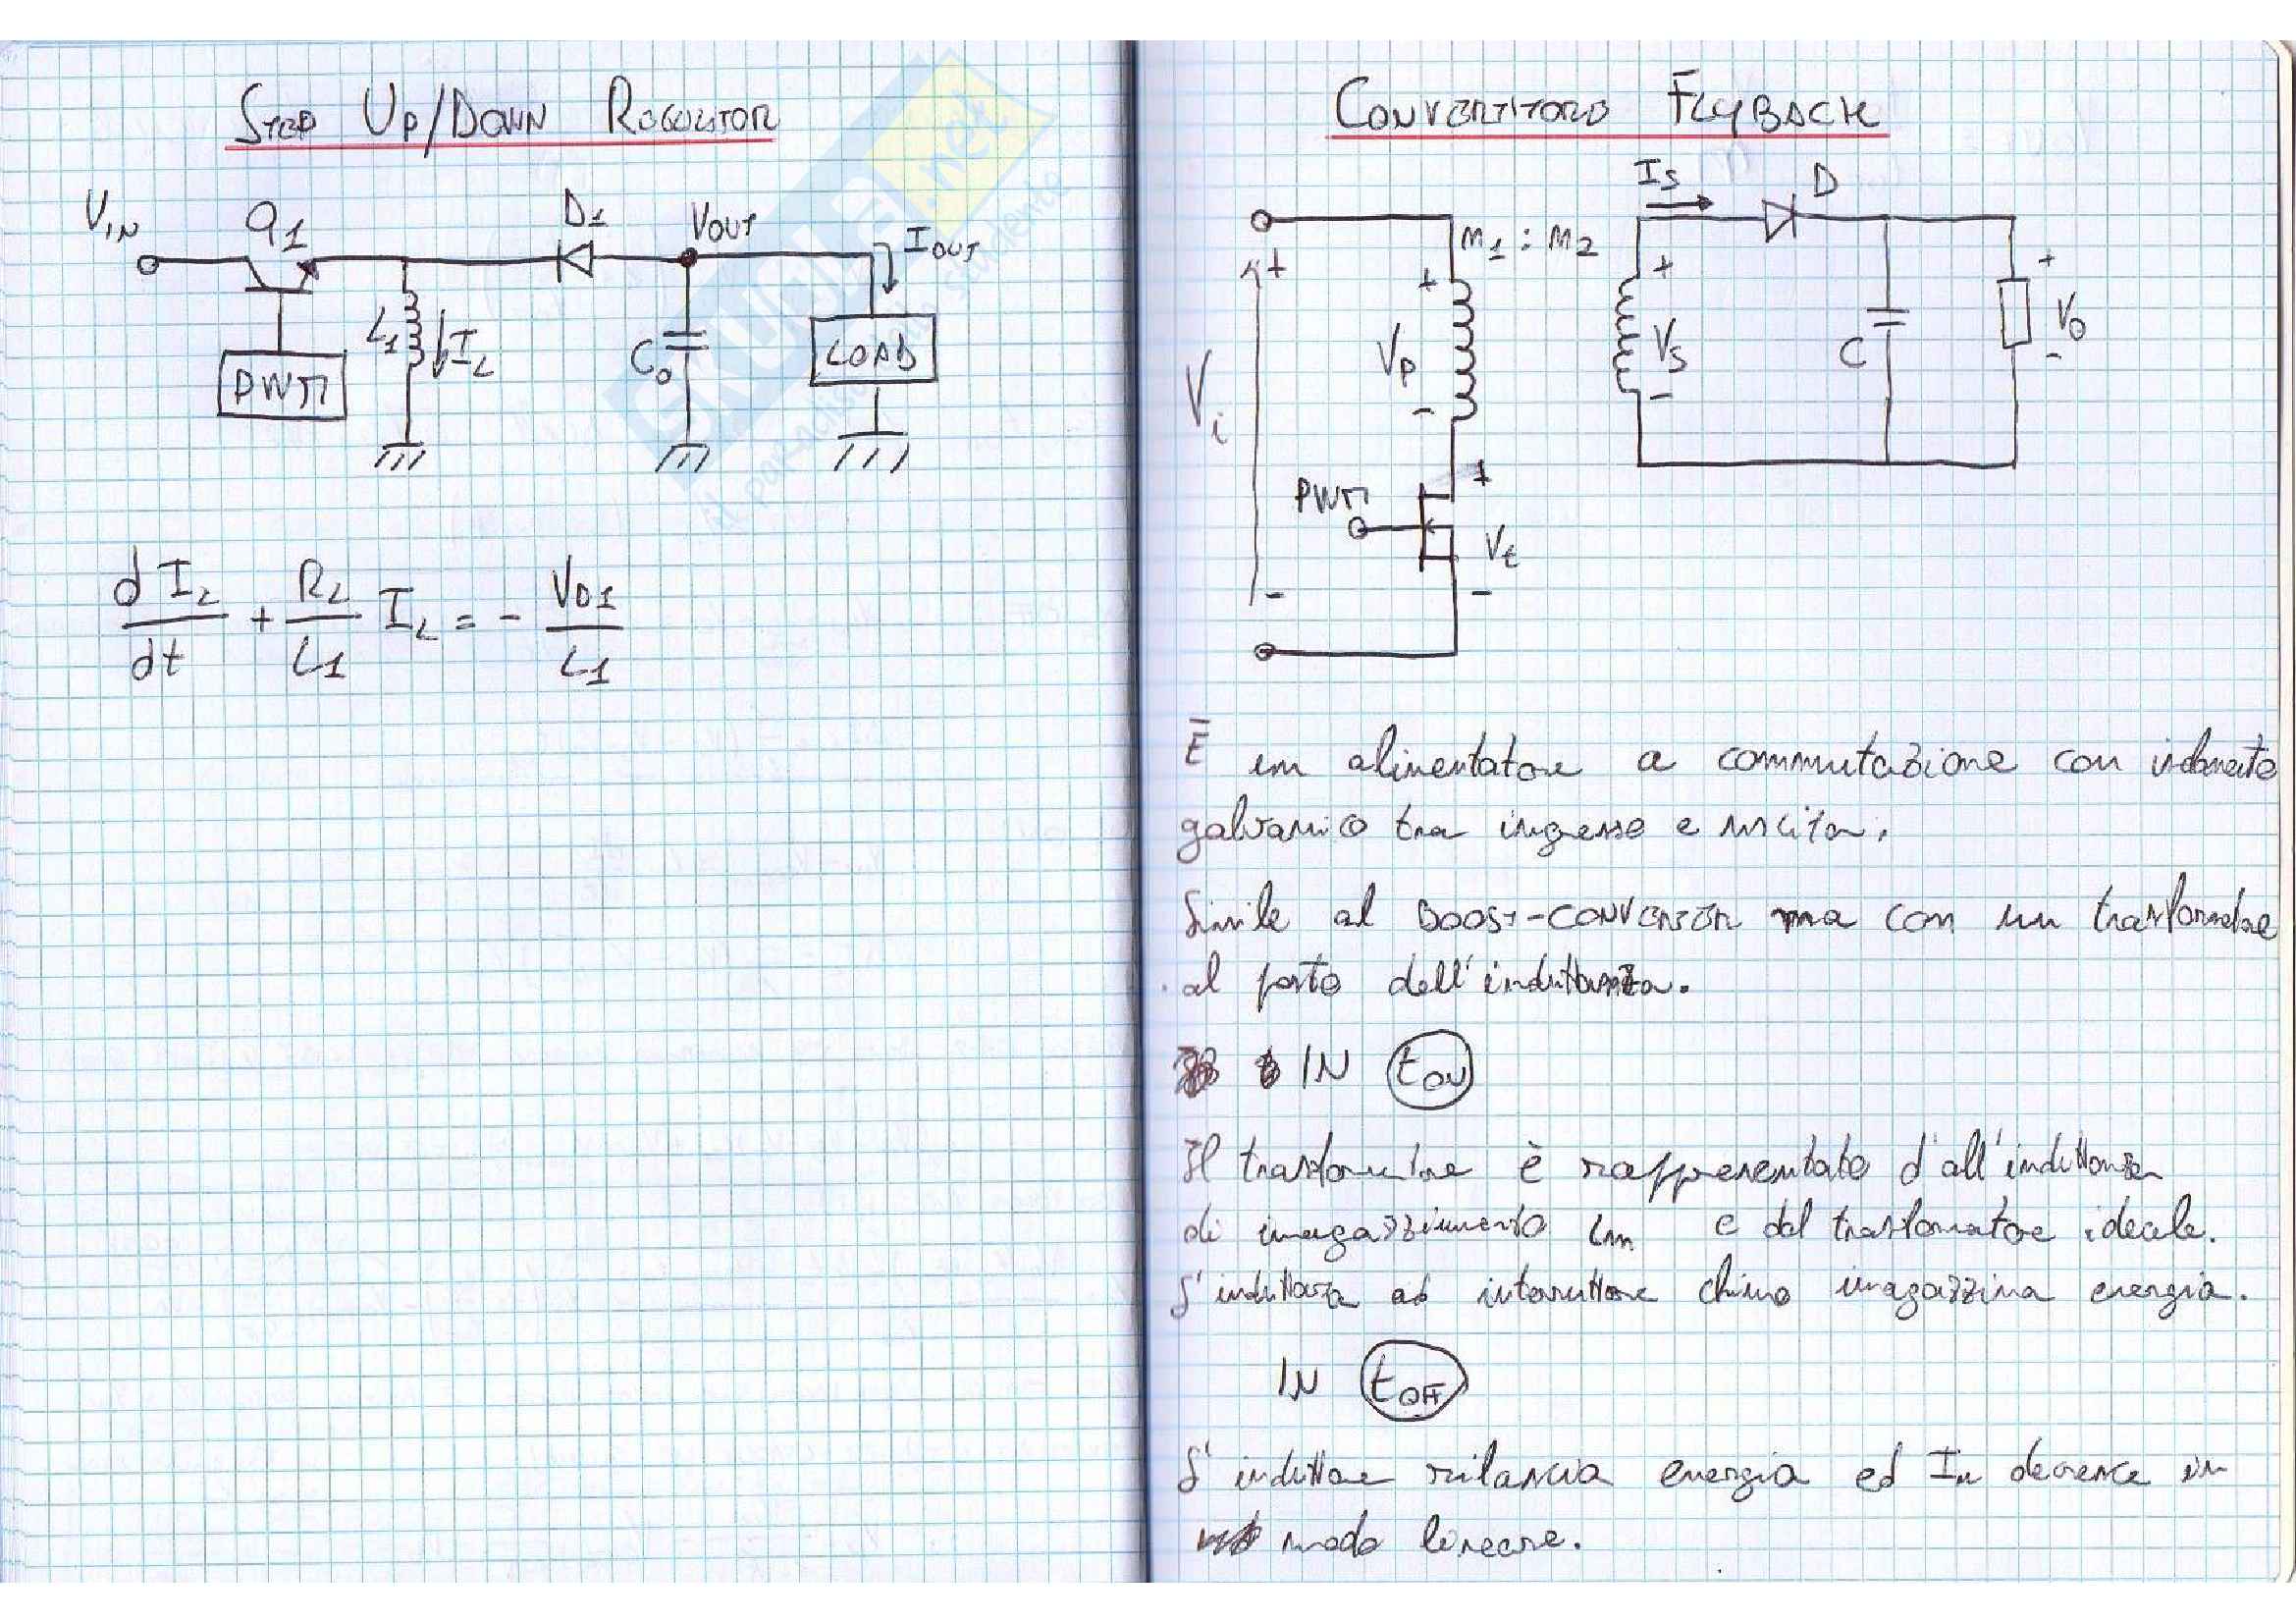 STEP UP/DOWN REGULATOR
VIN
Q1
D1
VOUT
IOUT
L1
IL
C0
LOAD
PWM
dIL/dt + RL/L1 IL = - VD1/L1
CONVERTITORE FLYBACK
IS
D
m1 : m2
+
+
+
+
Vi
VP
VS
C
V0
-
-
-
PWM
+
Vt
-
-
È un alimentatore a commutazione con isolamento
galvanico tra ingresso e uscita.
Simile al BOOST-CONVERTER ma con un trasformatore
al posto dell'induttanza.
IN tON
Il trasformatore è rappresentato d'all'induttanza
di imagazzinamento Lm e dal trasformatore ideale.
L'induttanza ad interruttore chiuso imagazzina energia.
IN tOFF
L'induttore rilascia energia ed Im decresce in
modo lineare.
skuola.net
il paradiso dello studente